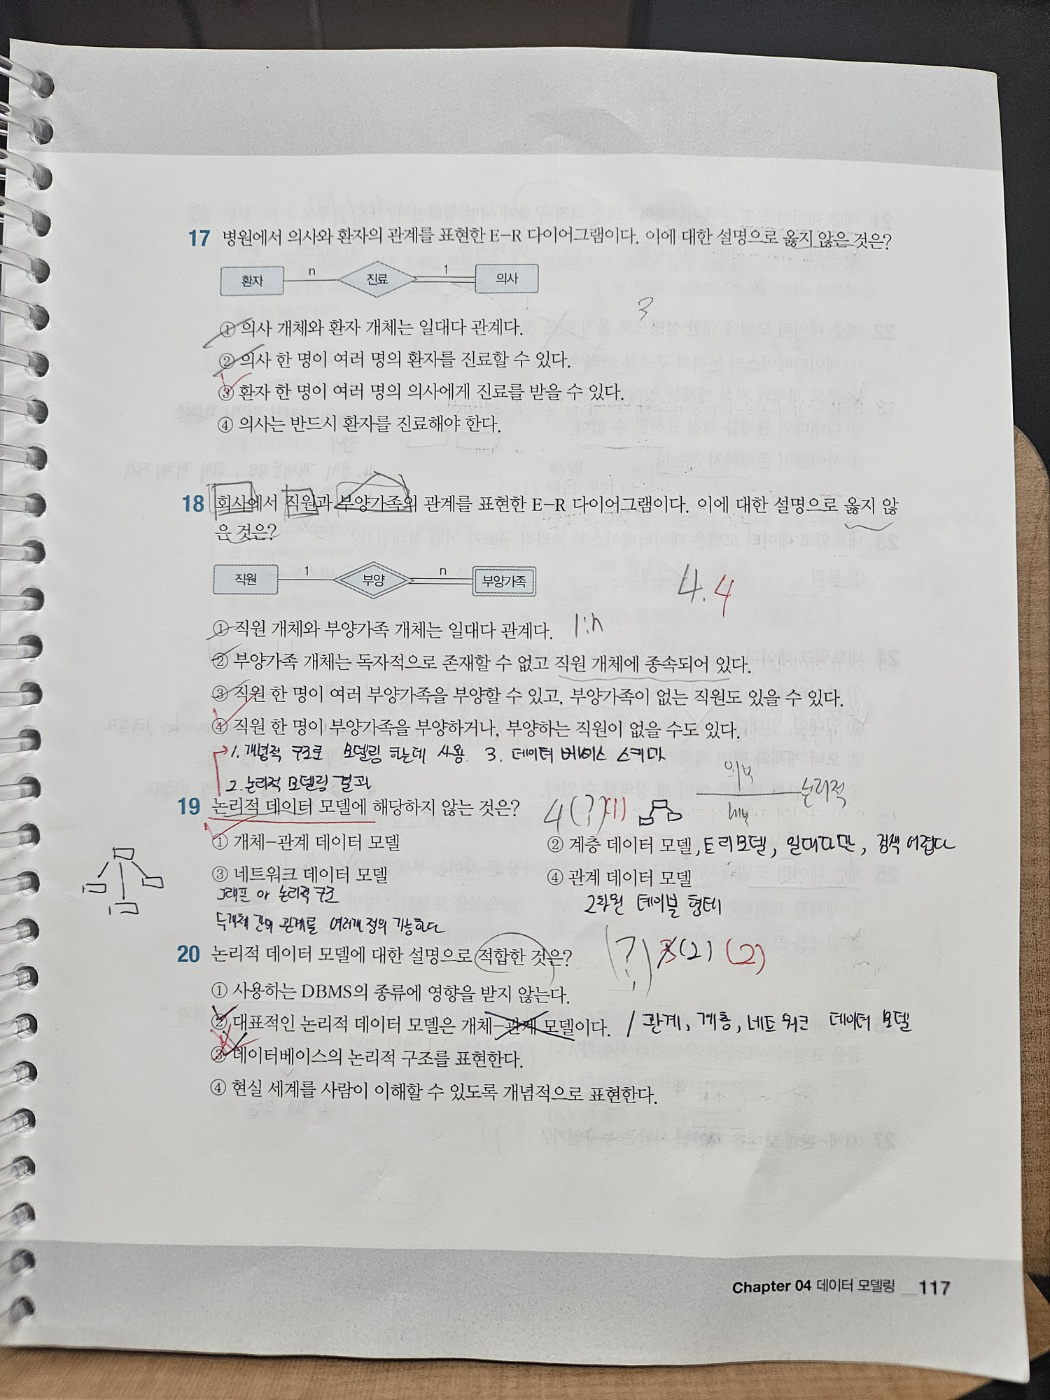 17 병원에서 의사와 환자의 관계를 표현한 E-R 다이어그램이다. 이에 대한 설명으로 옳지 않은 것은?
환자 n 진료 1 의사
3
① 의사 개체와 환자 개체는 일대다 관계다.
② 의사 한 명이 여러 명의 환자를 진료할 수 있다.
③ 환자 한 명이 여러 명의 의사에게 진료를 받을 수 있다.
④ 의사는 반드시 환자를 진료해야 한다.
18 회사에서 직원과 부양가족의 관계를 표현한 E-R 다이어그램이다. 이에 대한 설명으로 옳지 않
은 것은?
직원 1 부양 n 부양가족
4. 4
① 직원 개체와 부양가족 개체는 일대다 관계다. 1:n
② 부양가족 개체는 독자적으로 존재할 수 없고 직원 개체에 종속되어 있다.
③ 직원 한 명이 여러 부양가족을 부양할 수 있고, 부양가족이 없는 직원도 있을 수 있다.
④ 직원 한 명이 부양가족을 부양하거나, 부양하는 직원이 없을 수도 있다.
1. 개념적 구조로 모델링 하는데 사용. 3. 데이터 베이스 스키마
2. 논리적 모델링 결과
논리적
19 논리적 데이터 모델에 해당하지 않는 것은? 4 (?) (1)
① 개체-관계 데이터 모델
② 계층 데이터 모델, 트리모델, 일대다만, 검색 어렵다
③ 네트워크 데이터 모델
④ 관계 데이터 모델
그래프 논리적 구조
2차원 테이블 형태
두개체 간의 관계를 여러개 정의 가능하다
20 논리적 데이터 모델에 대한 설명으로 적합한 것은? (?) 3 (2) (2)
① 사용하는 DBMS의 종류에 영향을 받지 않는다.
② 대표적인 논리적 데이터 모델은 개체-관계 모델이다. / 관계, 계층, 네트워크 데이터 모델
③ 데이터베이스의 논리적 구조를 표현한다.
④ 현실 세계를 사람이 이해할 수 있도록 개념적으로 표현한다.
Chapter 04 데이터 모델링 117